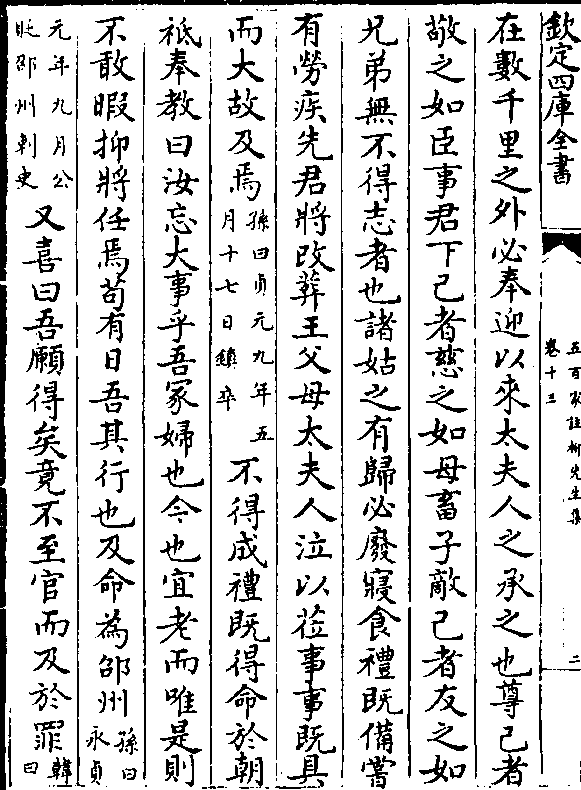 欽定四庫全書
五百家註柳先生集
卷十三
二
在數千里之外必奉迎以來太夫人之承之也尊己者
敬之如臣事君下己者慈之如母畜子敵己者友之如
兄弟無不得志者也諸姑之有歸必廢寢食禮既備嘗
有勞疾先君將改葬王父母太夫人泣以莅事事既具
而大故及焉孫曰貞元九年五月十七日鎮卒不得成禮既得命於朝
祗奉教曰汝忘大事乎吾冢婦也今也宜老而唯是則
不敢暇抑將任焉苟有日吾其行也及命為邵州孫曰永貞
元年九月公貶邵州刺史又喜曰吾願得矣竟不至官而及於罪韓曰